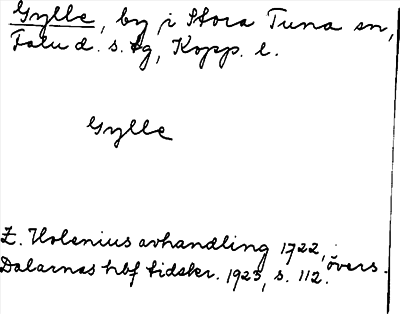 Gylle, by i Stora Tuna sn,
Falu d. s. tg, Kopp. l.
Gylle
E. Holenius avhandling 1722, övers.
Dalarnas hbf tidskr. 1923, s. 112.